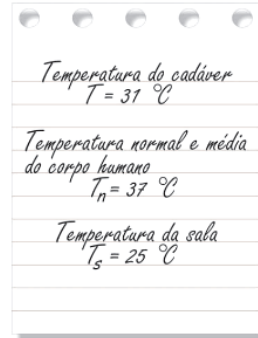 Temperatura do cadáver
T = 31 °C
Temperatura normal e média
do corpo humano
Tn = 37 °C
Temperatura da sala
Ts = 25 °C